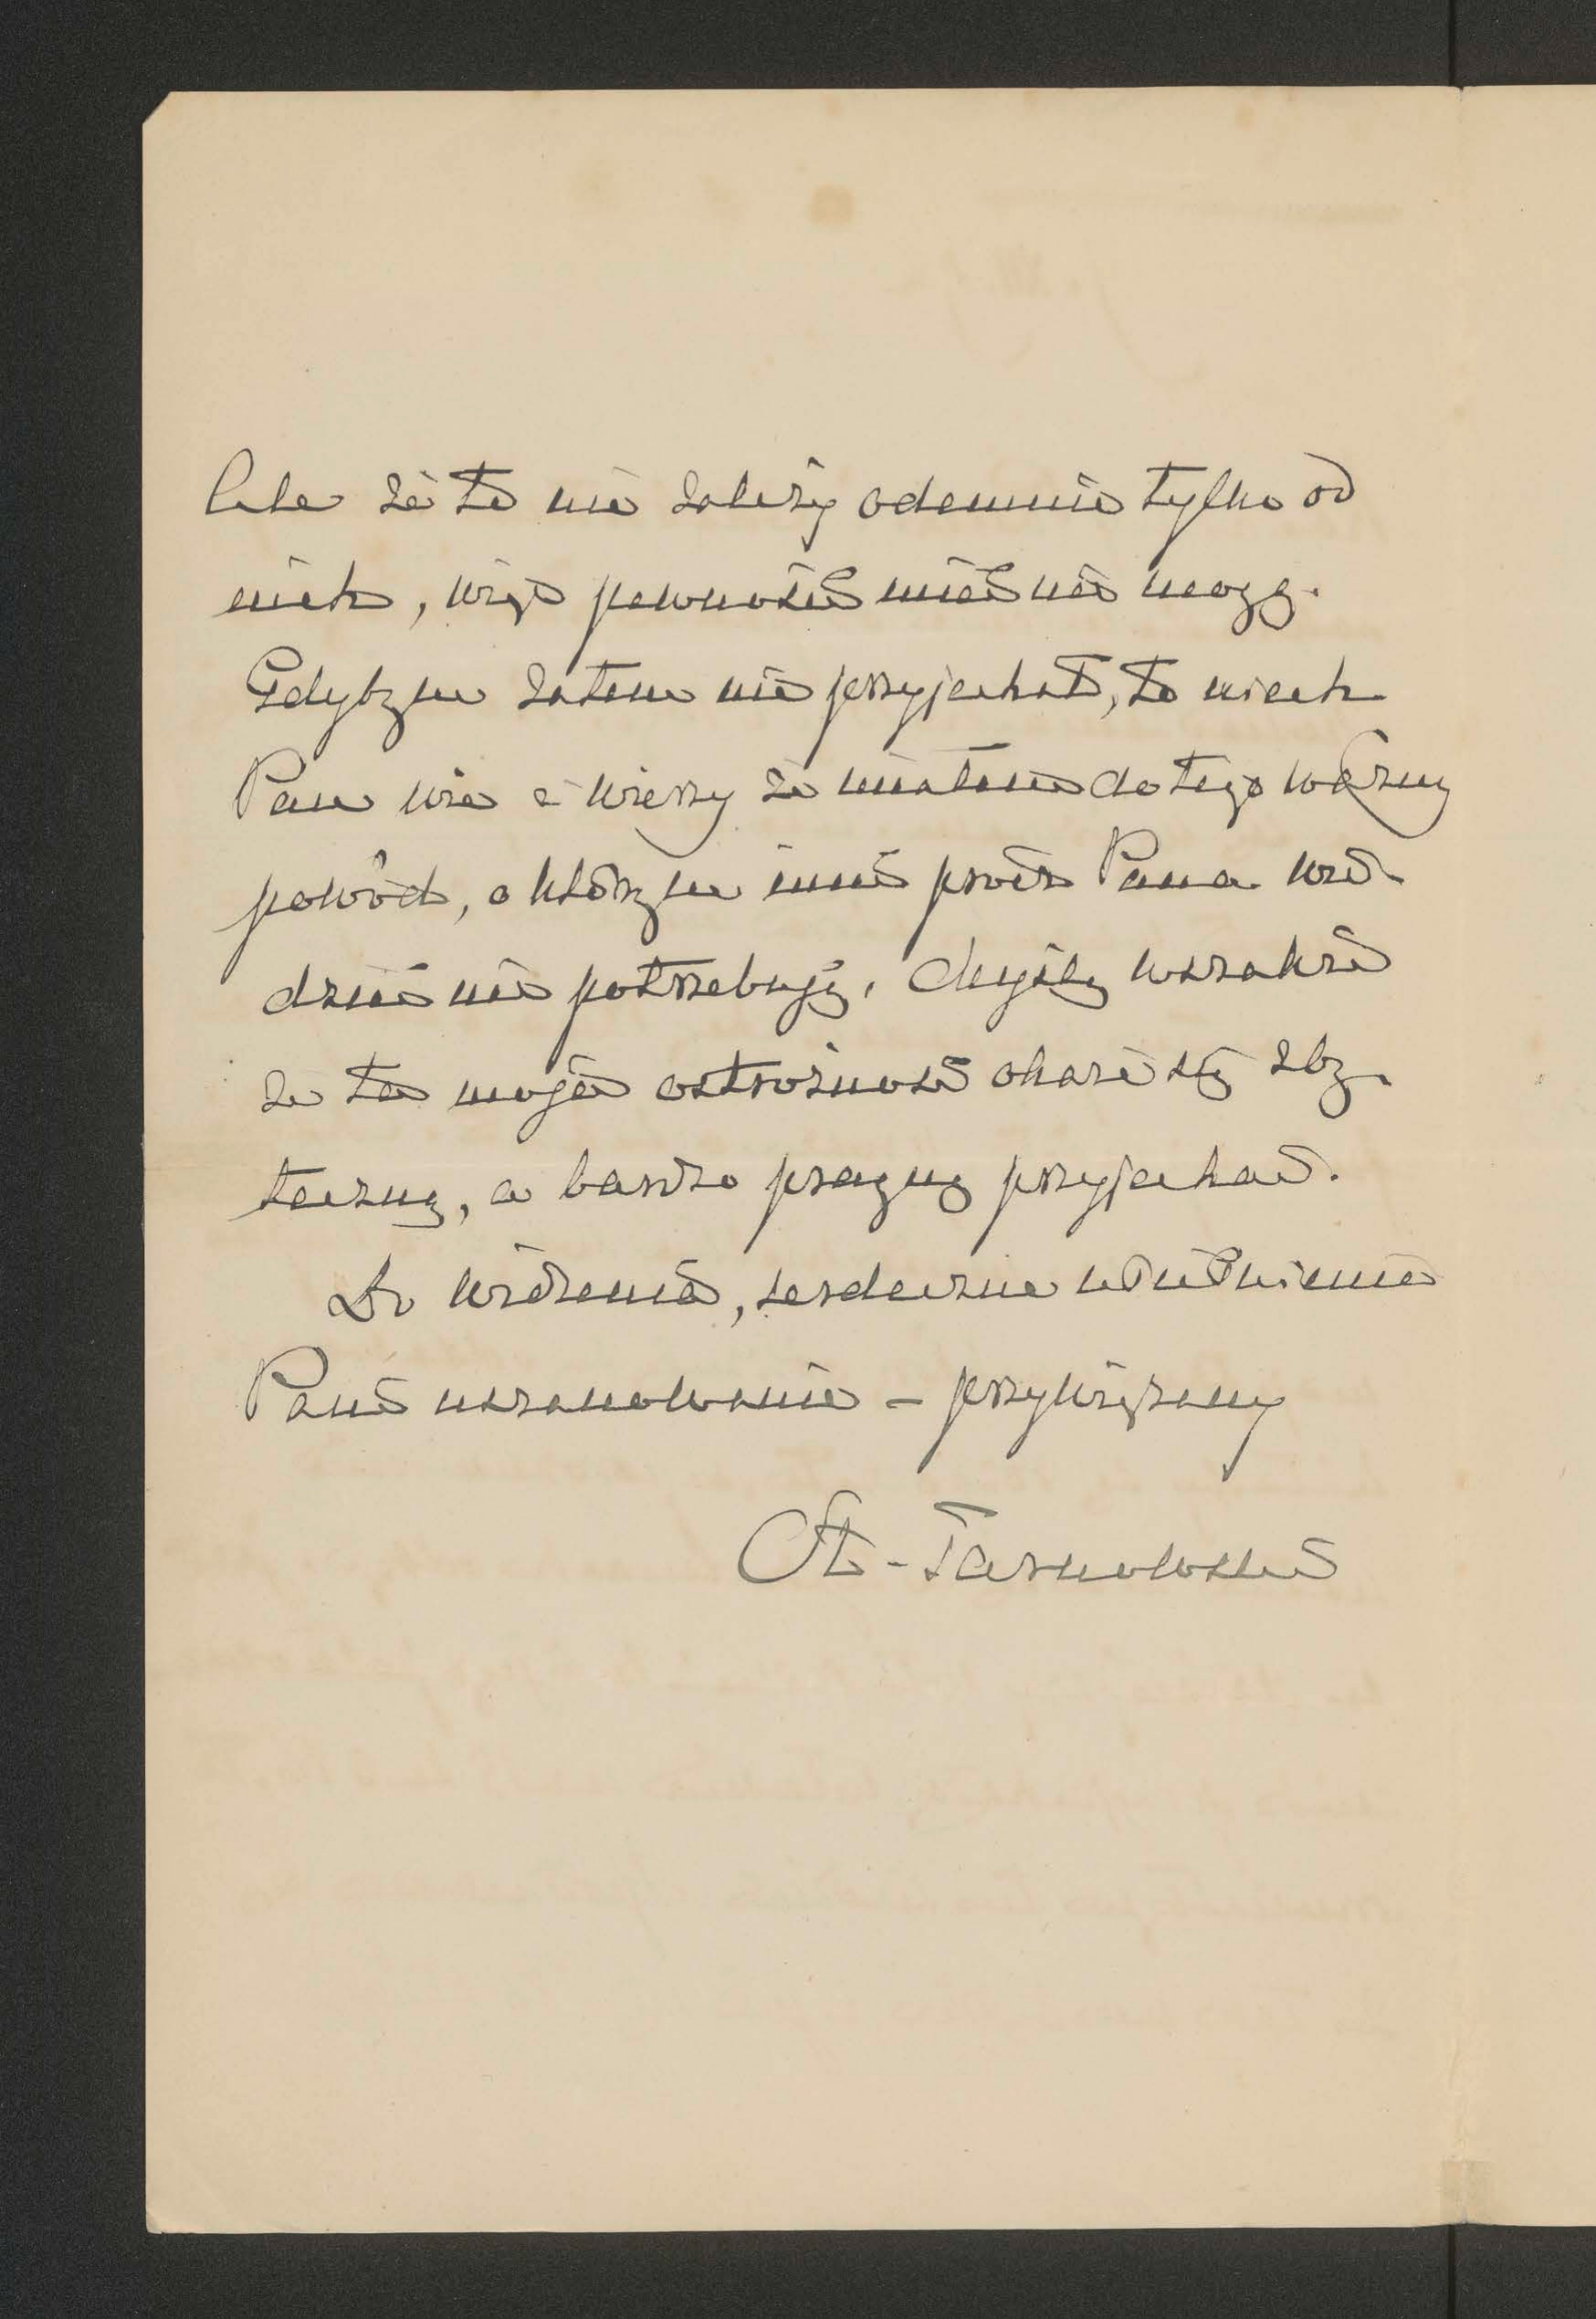 Ale że to nie zależy odemnie tylko od
nich, więc pewności mieć nie mogę.
Gdybym zatem nie przyjechał, to niech
Pan wie i wierzy że miałem do tego ważny
powód, o którym inni prócz Pana wie-
dzieć nie potrzebują. Myślę wszakże
że ta moja ostrożność okaże się zby-
teczną, a bardzo pragnę przyjechać.
Do widzenia, serdeczne uściśnienie
Pana uszanowanie – przywiązany
St. Tarnowski